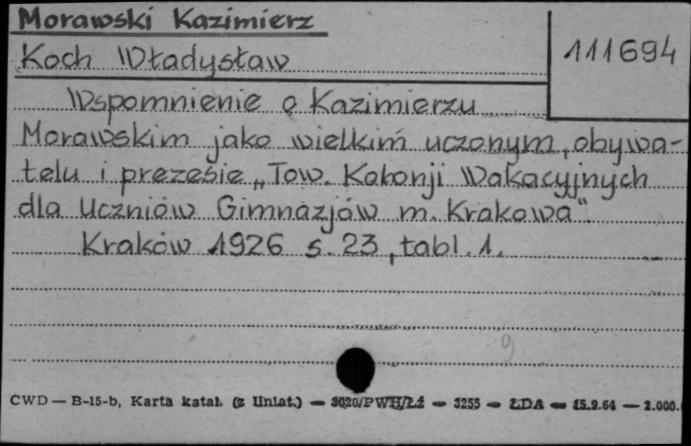 Morawski Kazimierz
111694
Koch Władysław
Wspomnienie o Kazimierzu
Morawskim jako wielkim uczonym, obywa-
telu i prezesie „Tow. Kolonji Wakacyjnych
dla Uczniów Gimnazjów m. Krakowa".
Kraków 1926 s. 23, tabl. 1.
9
CWD — B-15-b, Karta katal. (z Uniat.) — 3020/PWH/Łź — 3255 — ŁDA — 15.9.64 — 2.000.